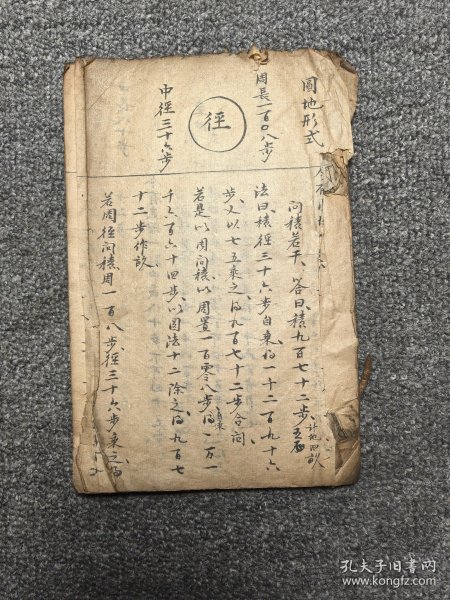 圓地形式
周長一百〇八步
徑
中徑三十六步
問積若干、答曰、積九百七十二步
計地四畝
法曰積徑三十六步自乘得一千二百九十六
步、又以七五乘之得九百七十二步合問
若是以周問積、以周置一百零八步自乘得一万一
千六百六十四步、以圓法十二除之得九百七
十二步作畝
若周徑問積周一百八步、徑三十六步乘之得
孔夫子旧书网
www.kongfz.com